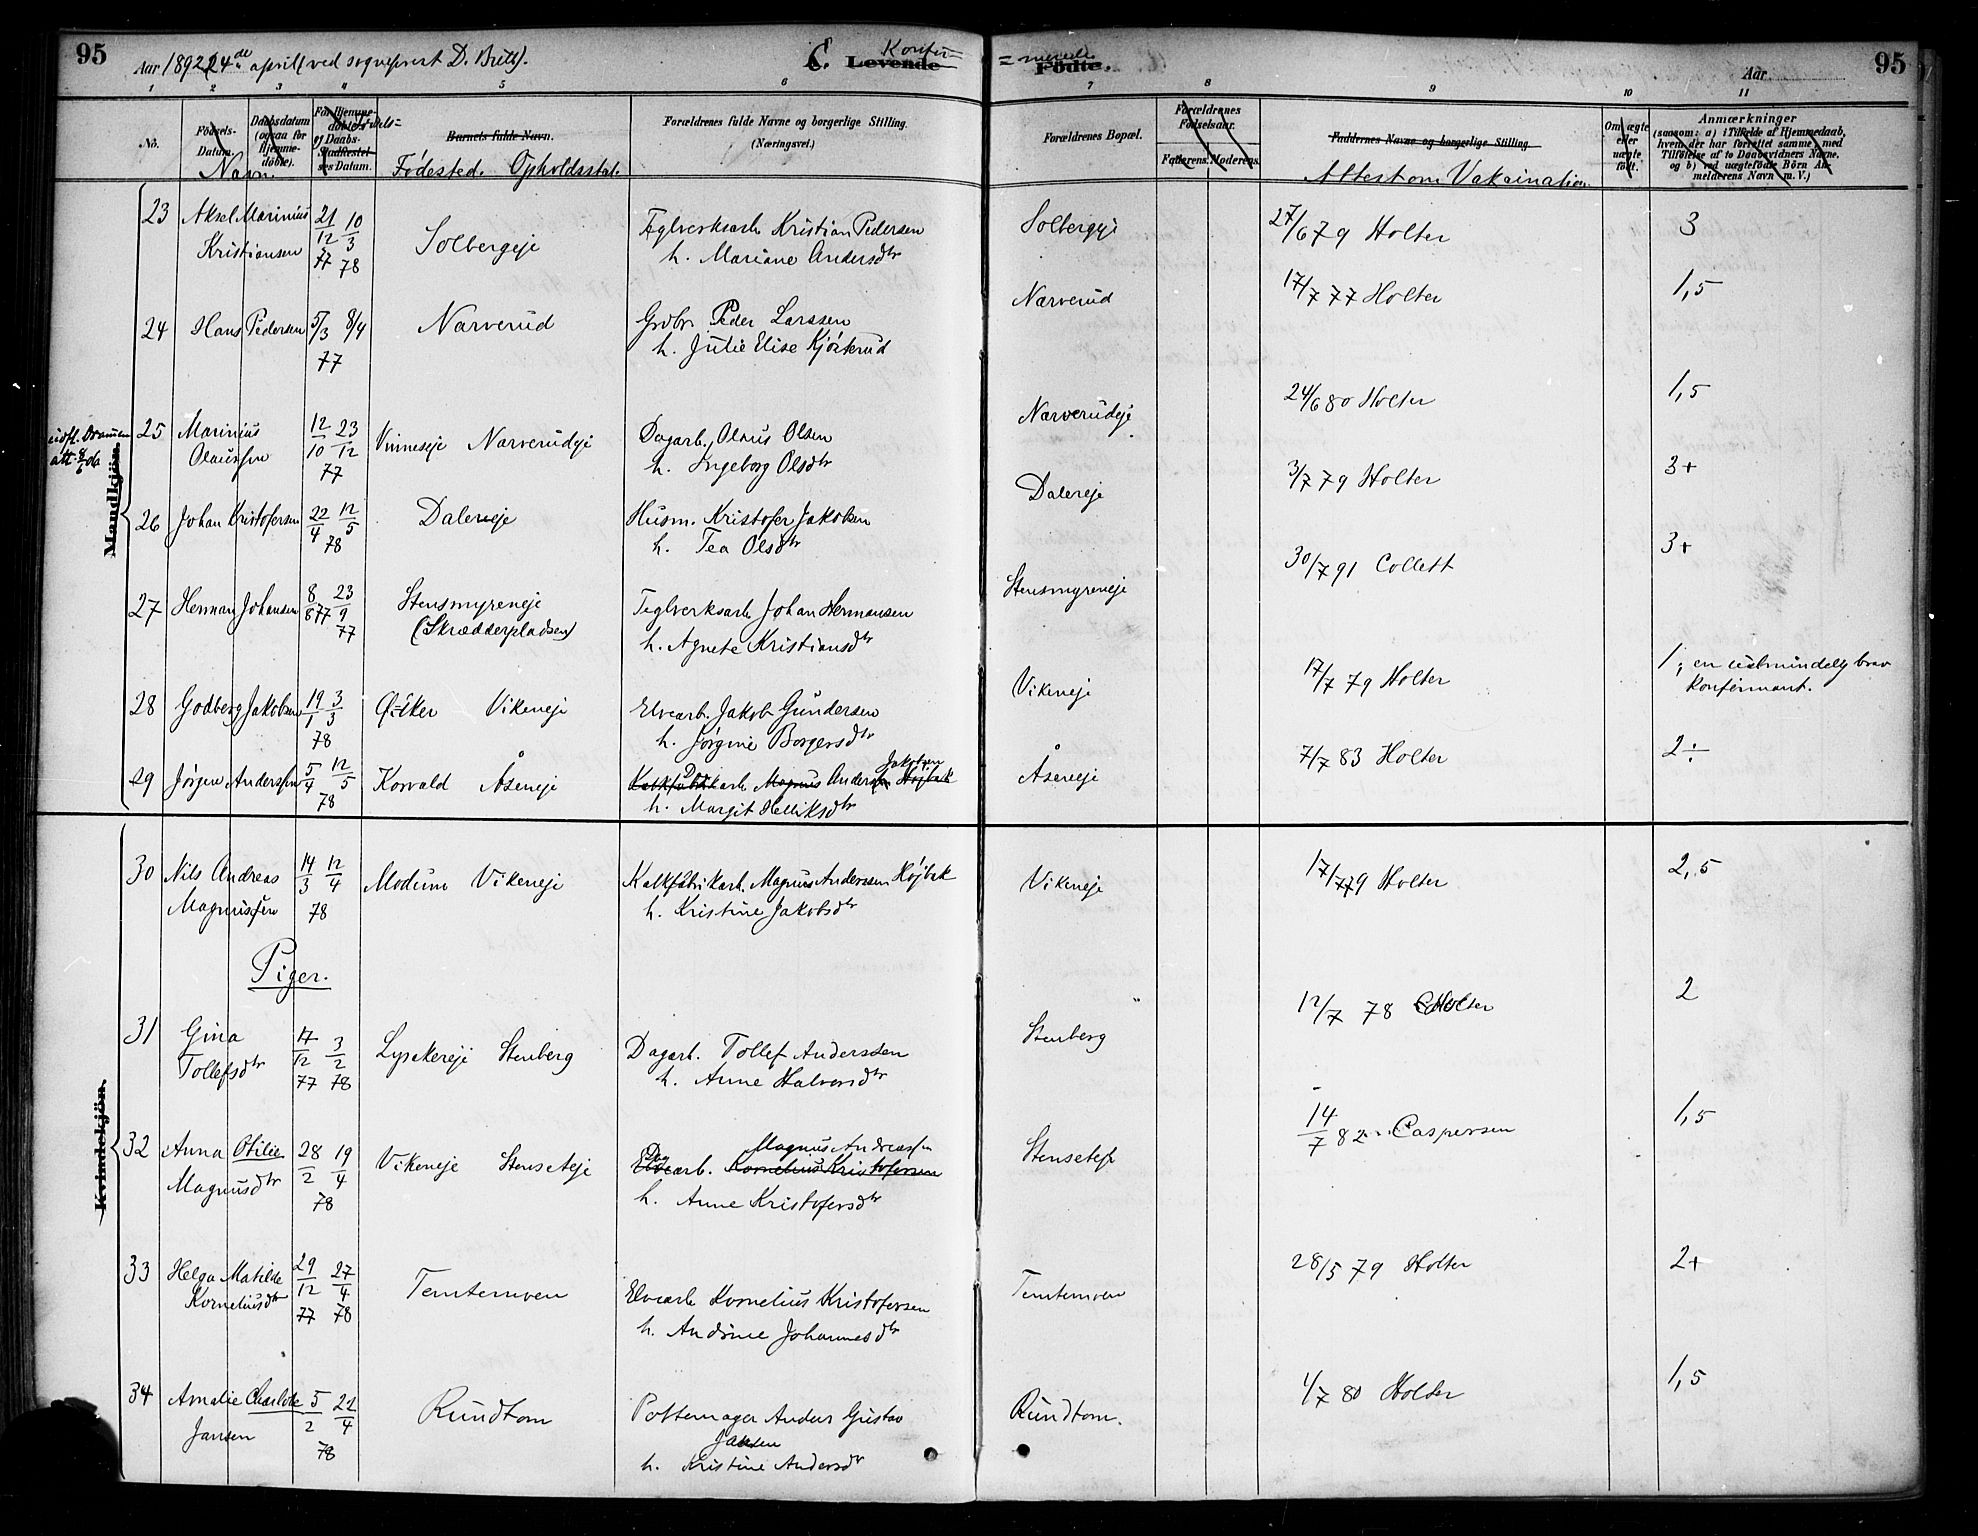 95
Aar 1892 (24de april (ved sogneprest D. Britt).
C. Levende Konfir=
=merede.
Fødte.
Aar
95
1 2 3 4 5 6 7 8 9 10 11
No.
Födsels-
Datum.
Navn.
Daabsdatum
(ogsaa for
Hjemme-
döbte).
Barnets fulde Navn.
Fødested. Opholdsstd.
Forældrenes fulde Navne og borgerlige Stilling.
(Næringsvei.)
Forældrenes Bopæl.
Forældrenes
Fødselsaar.
Faderens. Moderens.
Faddernes Navne og borgerlige Stilling
Attest om Vakcination
Om ægte
eller
uægte
født.
Anmærkninger
(saasom: a) i Tilfælde af Hjemmedaab,
hvem der har forrettet samme, med
Tilföielse af to Daabsvidners Navne,
og b) ved uægtefödte Börn An-
melderens Navn m. V.)
Mandkjön.
23 Aksel Marinius 21/12 77 10/3 78 Solbergeje Teglverksarb. Kristian Pedersen Solbergeje 27/6 79 Holter 3
Kristiansen h. Mariane Andersdtr
24 Hans Pedersen 5/3 8/4 77 Narverud Grdbr. Peder Larssen Narverud 17/7 77 Holter 1,5
h. Julie Elise Kjösterud
udfl. Drammen
att. 8/6 06
25 Marinius 12/10 23/12 77 Vinneseje Narverudeje Dagarb. Olaus Olsen Narverudeje 24/6 80 Holter 1,5
Olaussen h. Ingeborg Olsdtr
26 Johan Kristofersen 22/4 12/5 78 Dalereje Husm. Kristofer Jakobsen Dalereje 3/7 79 Holter 3+
h. Tea Olsdtr
27 Herman Johansen 8/8 77 23/9 77 Stensmyreneje Teglverksarb. Johan Hermansen Stensmyreneje 30/7 91 Collett 3+
(Skrædderpladsen) h. Agnete Kristiansdtr
28 Godberg Jakobsen 19/1 3/3 78 Ø. Eker Vikeneje Elvearb. Jakob Gundersen Vikeneje 17/7 79 Holter 1, en ualmindelig brav
konfirmant.
h. Jørgine Borgersdtr
29 Jørgen Anderssen 5/4 12/5 78 Korvald Åseneje Kalkfabrikarb. Magnus Anderssen Højbak Jakobsen Åseneje 7/7 83 Holter 2÷
h. Margit Helliksdtr
Kvindekjön.
30 Nils Andreas 14/3 12/4 78 Modum Vikeneje Kalkfabrikarb. Magnus Anderssen Højbak Vikeneje 17/7 79 Holter 2,5
Magnussen h. Kristine Jakobsdtr
Piger.
31 Gina 17/12 77 3/2 78 Lysakereje Stenberg Dagarb. Tollef Anderssen Stenberg 12/7 78 Holter 2
Tollefsdtr h. Anne Halvorsdtr
32 Anna Otilie 28/2 19/4 78 Vikeneje Stenseteje Elvearb. Kornelius Kristofersen Magnus Andreassen 14/7 82 Caspersen 1,5
Magnusdtr h. Anne Kristofersdtr
33 Helga Matilde 29/12 77 27/4 78 Temtemoen Elvearb Kornelius Kristofersen Temtemoen 28/5 79 Holter 2+
Korneliusdtr h. Andrine Johannesdtr
34 Amalie Charlotte 5/2 22/4 78 Rundtom Pottemager Anders Gustav Rundtom. 1/7 80 Holter 1,5
Jansen Jansen
h. Kristine Andersdtr